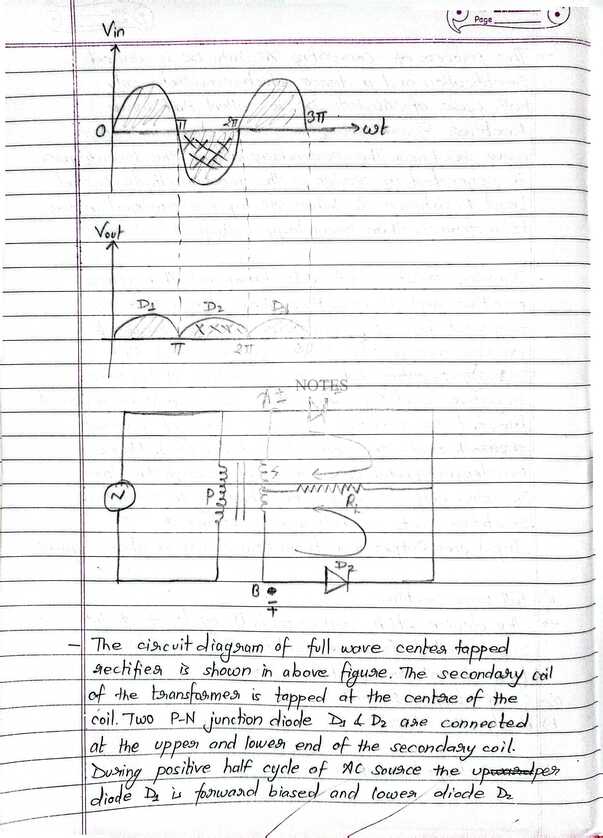 Page
Vin
0 π 2π 3π → ωt
Vout
D1 D2 D1
π 2π 3π
NOTES
A ±
S
P
RL
D2
B
- The circuit diagram of full wave center tapped
rectifier is shown in above figure. The secondary coil
of the transformer is tapped at the centre of the
coil. Two P-N junction diode D1 & D2 are connected
at the upper and lower end of the secondary coil.
During positive half cycle of AC source the upper
diode D1 is forward biased and lower diode D2